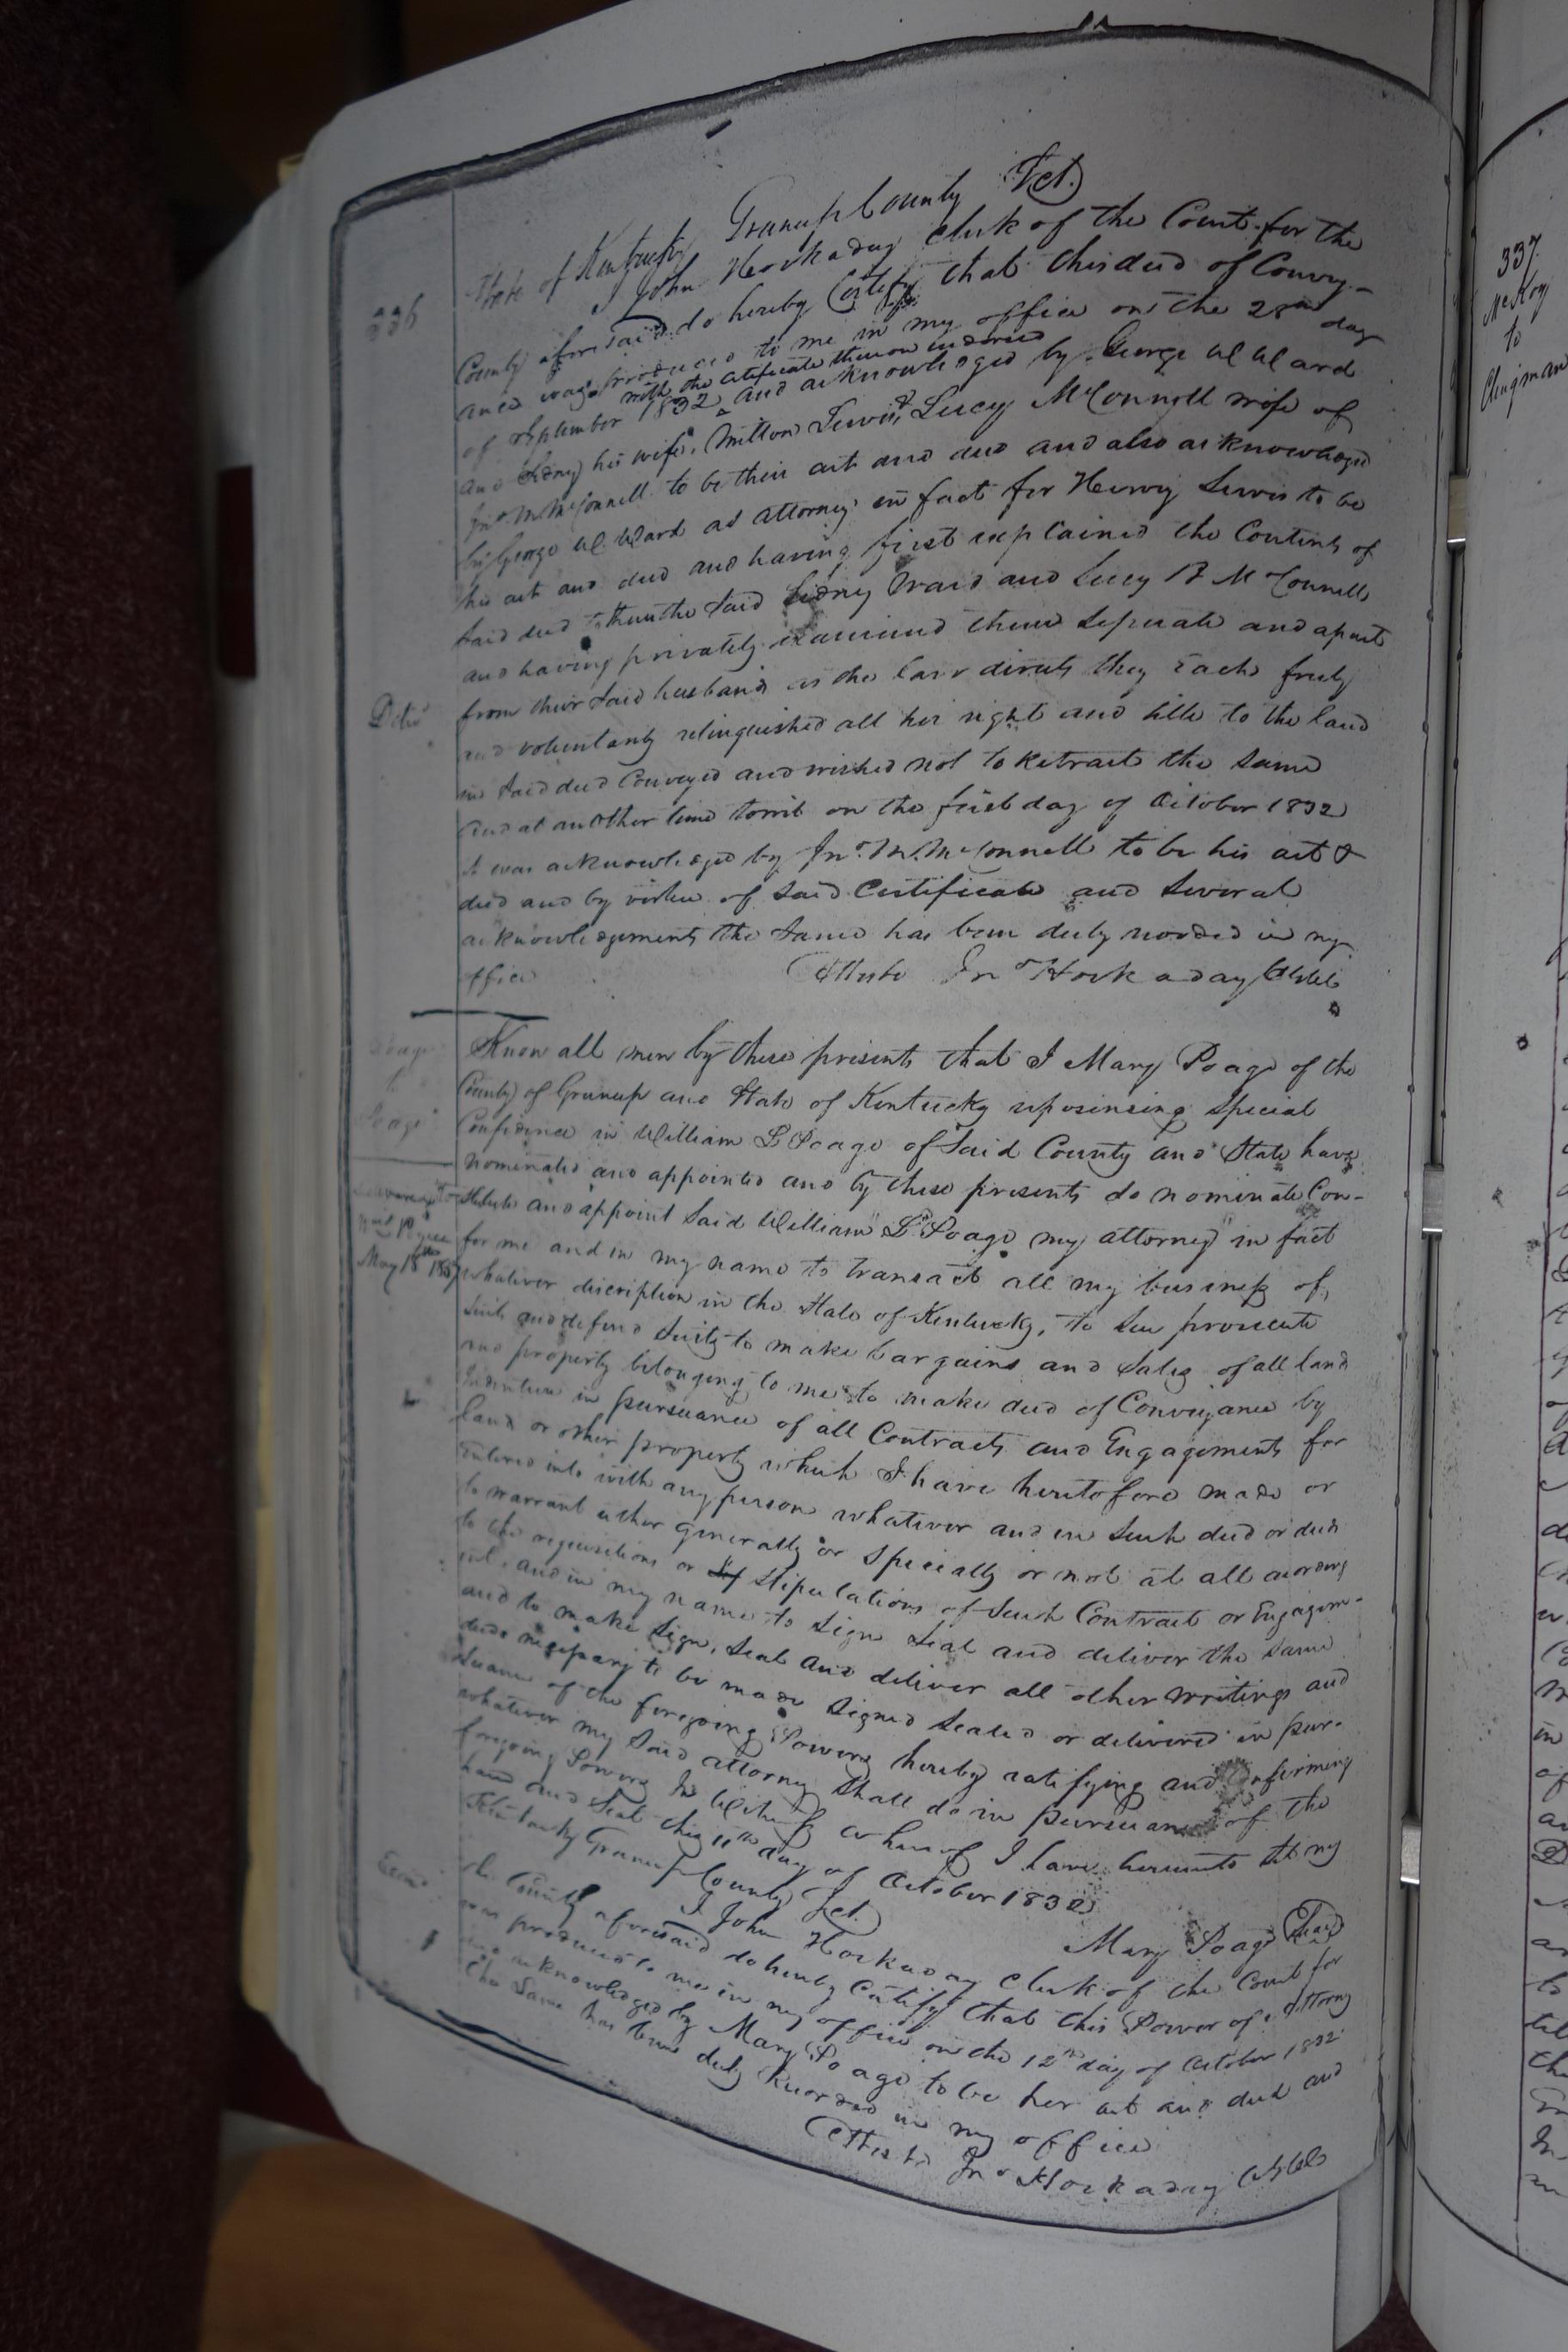 336
State of Kentucky Greenup County Sct.
I John Hockaday Clerk of the Court for the
County aforesaid do hereby Certify that this deed of Convey-
ance was produced to me in my office on the 28th day
with the certificate thereon indorsed
of September 1832 and acknowledged by George W Ward
and Sidney his wife, Milton Lewis, & Lucy McConnell wife of
Jno. M. McConnell to be their act and deed and also acknowledged
by George W. Ward as attorney in fact for Hervy Lewis to be
his act and deed and having first explained the Contents of
said deed to them the said Sidney Ward and Lucy B McConnell
and having privately examined them seperate and apart
from their said husbands as the law directs they Each freely
and voluntarily relinquished all her right and title to the land
in said deed Conveyed and wished not to Retract the same
And at another time towit on the first day of October 1832
it was acknowledged by Jno. M. McConnell to be his act &
deed and by virtue of said Certificate and several
acknowledgements the same has been duly recorded in my
office
Atteste Jno Hockaday
Poage
to
Poage
Know all men by these presents that I Mary Poage of the
County of Greenup and State of Kentucky reposinsing special
Confidence in William L Poage of said County and State have
nominated and appointed and by these presents do nominate Con-
stitute and appoint said William L Poage my attorney in fact
for me and in my name to transact all my business of
whatever discription in the State of Kentucky, to sue prosecute
suits and defend suits to make bargains and sales of all land
and property belonging to me to make deed of Conveyance by
Indenture in pursuance of all Contracts and Engagements for
land or other property which I have heretofore made or
Entered into with any person whatever and in such deed or deeds
to warrant either generally or specially or not at all according
to the requisitions or stipulations of such Contract or Engagem-
ent, and in my name to sign seal and deliver the same
and to make sign, seal and deliver all other writings and
deeds necessary to be made signed sealed or delivered in pur-
suance of the foregoing Powers hereby ratifying and Confirming
whatever my said attorney shall do in pursuance of the
foregoing Powers In Witness whereof I have hereunto set my
hand and seal this 11th day of October 1832
Mary Poage Seal
Kentucky Greenup County Sct.
I John Hockaday Clerk of the Court for
the County aforesaid do hereby Certify that this Power of Attorney
was produced to me in my office on the 12th day of October 1832
and acknowledged by Mary Poage to be her act and deed and
the same has been duly Recorded in my office
Atteste Jno Hockaday
337
McKoy
to
Clingman